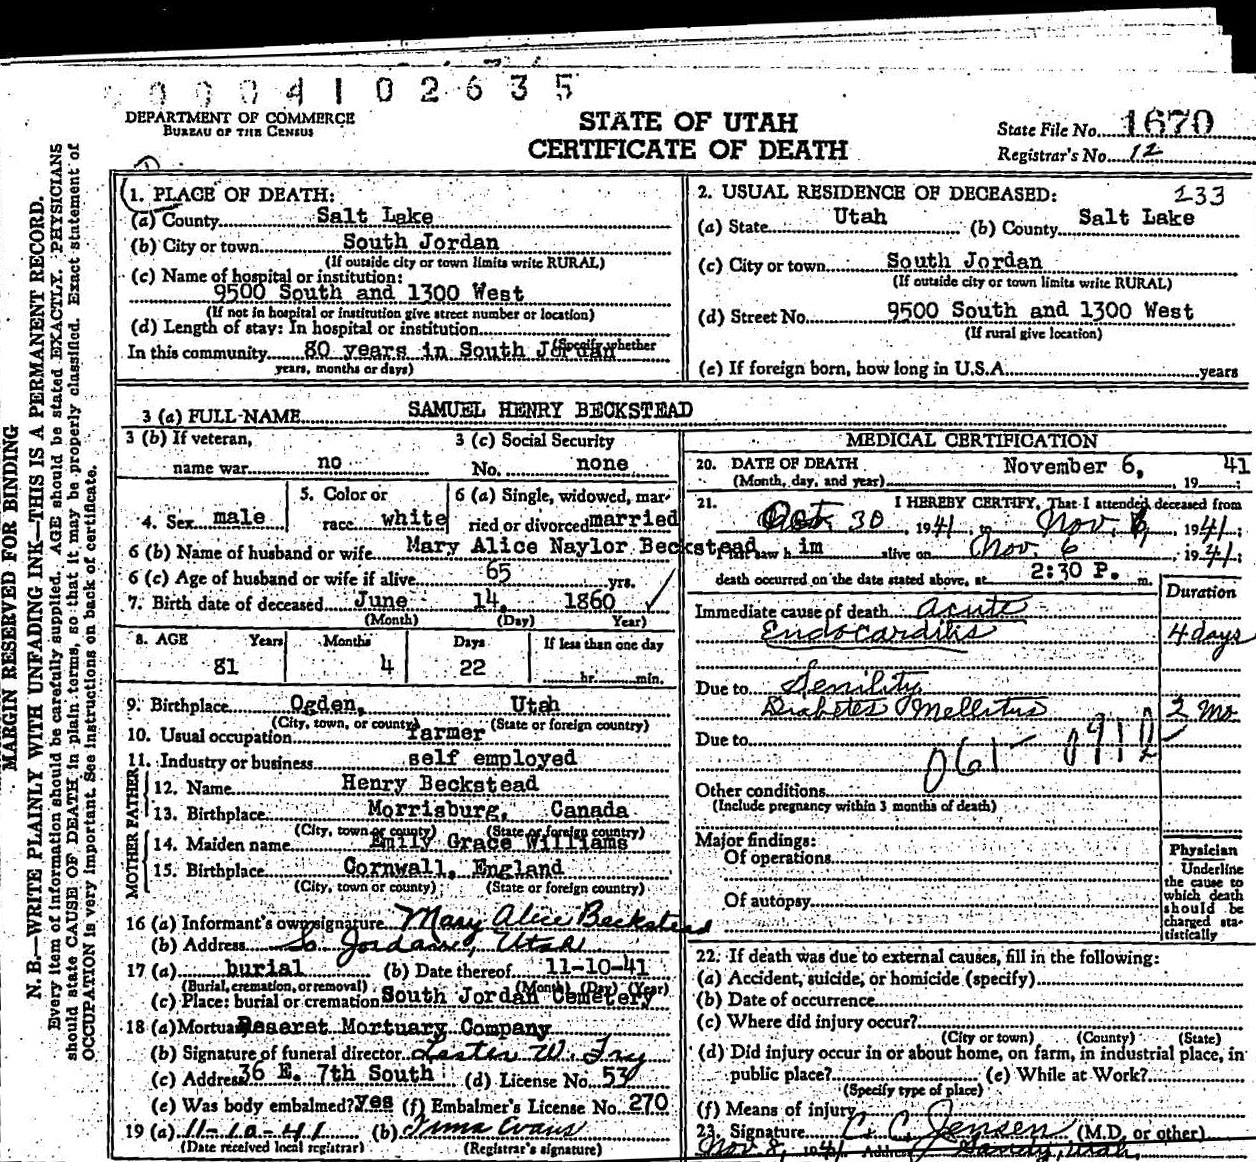 0 0 0 4 1 0 2 6 3 5
DEPARTMENT OF COMMERCE
BUREAU OF THE CENSUS
STATE OF UTAH
CERTIFICATE OF DEATH
State File No. 1670
Registrar's No. 12
MARGIN RESERVED FOR BINDING
N. B.—WRITE PLAINLY WITH UNFADING INK—THIS IS A PERMANENT RECORD.
Every item of information should be carefully supplied. AGE should be stated EXACTLY. PHYSICIANS
should state CAUSE OF DEATH in plain terms, so that it may be properly classified. Exact statement of
OCCUPATION is very important. See instructions on back of certificate.
1. PLACE OF DEATH:
(a) County Salt Lake
(b) City or town South Jordan
(If outside city or town limits write RURAL)
(c) Name of hospital or institution:
9500 South and 1300 West
(If not in hospital or institution give street number or location)
(d) Length of stay: In hospital or institution
(Specify whether
In this community 80 years in South Jordan
years, months or days)
2. USUAL RESIDENCE OF DECEASED: 133
(a) State Utah (b) County Salt Lake
(c) City or town South Jordan
(If outside city or town limits write RURAL)
(d) Street No. 9500 South and 1300 West
(If rural give location)
(e) If foreign born, how long in U.S.A. years
3 (a) FULL NAME SAMUEL HENRY BECKSTEAD
3 (b) If veteran,
name war no
3 (c) Social Security
No. none
4. Sex male
5. Color or
race white
6 (a) Single, widowed, mar-
ried or divorced married
6 (b) Name of husband or wife Mary Alice Naylor Beckstead
6 (c) Age of husband or wife if alive 65 yrs.
7. Birth date of deceased June 14, 1860
(Month) (Day) Year)
8. AGE Years Months Days If less than one day
81 4 22 hr. min.
9. Birthplace Ogden, Utah
(City, town, or county) (State or foreign country)
10. Usual occupation farmer
11. Industry or business self employed
FATHER
12. Name Henry Beckstead
13. Birthplace Morrisburg, Canada
(City, town or county) (State or foreign country)
MOTHER
14. Maiden name Emily Grace Williams
15. Birthplace Cornwall, England
(City, town or county) (State or foreign country)
16 (a) Informant's own signature Mary Alice Beckstead
(b) Address So. Jordan, Utah
17 (a) burial (b) Date thereof 11-10-41
(Burial, cremation, or removal) (Month) (Day) (Year)
(c) Place: burial or cremation South Jordan Cemetery
18 (a) Mortuary Deseret Mortuary Company
(b) Signature of funeral director Lester W. Fry
(c) Address 36 E. 7th South (d) License No. 53
(e) Was body embalmed? Yes (f) Embalmer's License No. 270
19 (a) 11-10-41 (b) Irma Evans
(Date received local registrar) (Registrar's signature)
MEDICAL CERTIFICATION
20. DATE OF DEATH November 6, 19 41;
(Month, day, and year)
21. I HEREBY CERTIFY, That I attended deceased from
Oct. 30, 1941, to Nov. 6, 1941;
I last saw h im alive on Nov. 6 1941;
death occurred on the date stated above, at 2:30 P. m.
Duration
Immediate cause of death Acute
Endocarditis 4 days
Due to Senility
Diabetes Mellitus 2 Mo
Due to
061
Other conditions
(Include pregnancy within 3 months of death)
Major findings:
Of operations
Of autopsy
Physician
Underline
the cause to
which death
should be
charged sta-
tistically
22. If death was due to external causes, fill in the following:
(a) Accident, suicide, or homicide (specify)
(b) Date of occurrence
(c) Where did injury occur?
(City or town) (County) (State)
(d) Did injury occur in or about home, on farm, in industrial place, in
public place? (e) While at Work?
(Specify type of place)
(f) Means of injury
23. Signature C. C. Jensen (M.D. or other)
Nov 8, 1941 Address Sandy, Utah